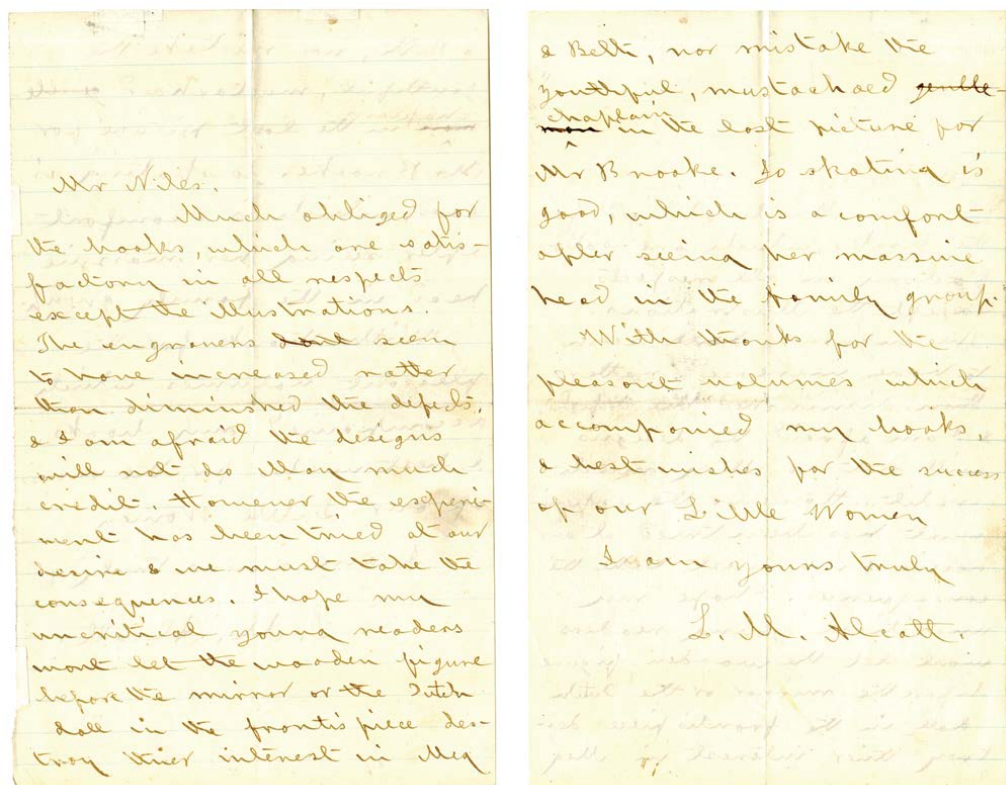 Mr Niles.
Much obliged for
the books, which are satis-
factory in all respects
except the illustrations.
The engravers dont seem
to have increased rather
than diminished the defects,
& I am afraid the designs
will not do May much
credit. However the experi-
ment has been tried at our
desire & we must take the
consequences. I hope my
uncritical young readers
wont let the wooden figure
before the mirror or the Dutch
doll in the frontispiece des-
troy thier interest in Meg
& Beth, nor mistake the
youthful, mustachaed gentle-
chaplain
man in the last picture for
Mr Brooke. Jo skating is
good, which is a comfort
after seeing her massive
head in the family group.
With thanks for the
pleasant volumes which
accompanied my books,
& best wishes for the success
of our Little Women
I am yours truly
L. M. Alcott.